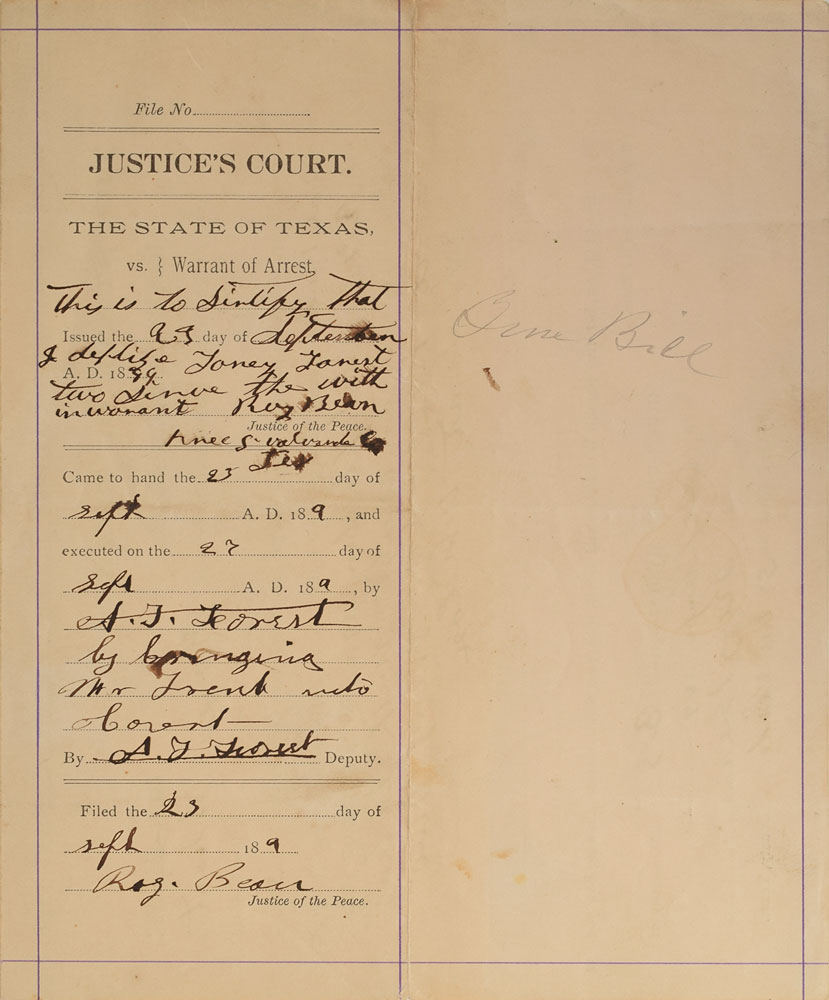 File No
JUSTICE'S COURT.
THE STATE OF TEXAS,
vs. } Warrant of Arrest,
This is to Sirtify That
Issued the 23 day of September
I deptise Toney Forest
A. D. 18
two Sirve the with
in worant Roy Bean
Justice of the Peace.
Came to hand the 23 day of
sept A. D. 189 , and
executed on the 27 day of
Sept A. D. 189 , by
A. F. Forest
by bringing
Mr Frenk into
Corest
By A. F. Forest Deputy.
Filed the 23 day of
sept 189
Roy. Bean
Justice of the Peace.
Bill